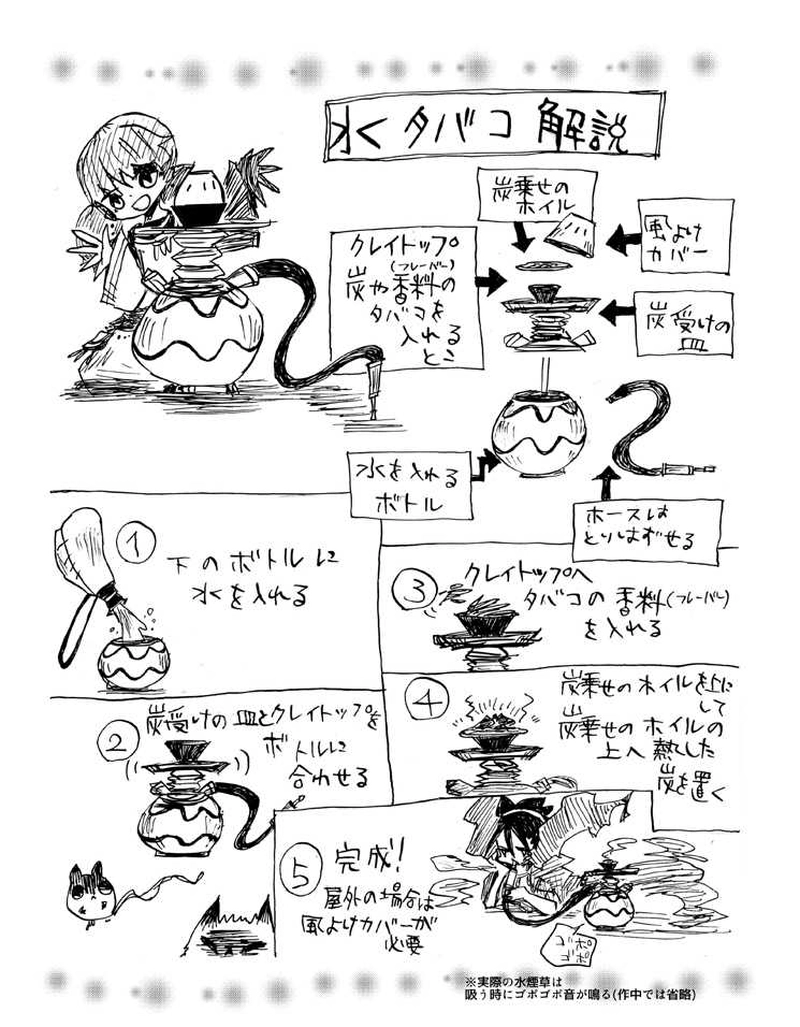 水タバコ解説
炭乗せの
ホイル
風よけ
カバー
クレイトップ
(フレーバー)
炭や香料の
タバコを
入れる
とこ
炭受けの
皿
水を入れる
ボトル
ホースは
とりはずせる
1
下のボトルに
水を入れる
2
炭受けの皿とクレイトップを
ボトルに
合わせる
3
クレイトップへ
タバコの香料(フレーバー)
を入れる
4
炭乗せのホイルを上に
して
炭乗せのホイルの
上へ熱した
炭を置く
5
完成!
屋外の場合は
風よけカバーが
必要
ゴポ
ゴポ
※実際の水煙草は
吸う時にゴポゴポ音が鳴る(作中では省略)